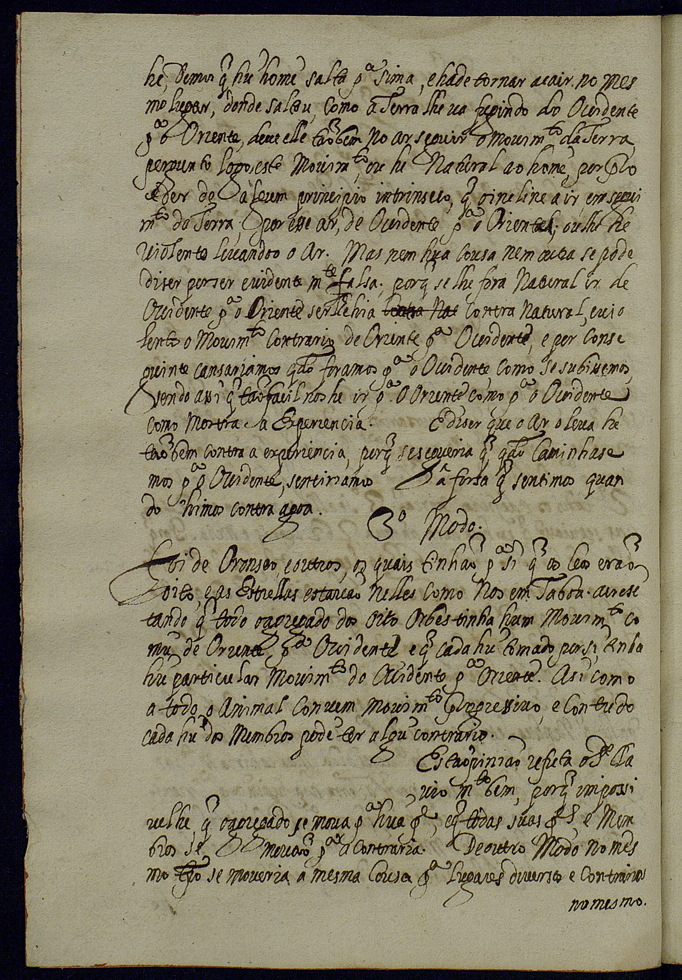 he, Demos q̃ hũ home salta pª sima, e hade tornar acair no mes
mo lugar, donde saltou, como a Terra lhe va fugindo do Ocidente
pª o Oriente, deve elle taõbem no ar seguir o Movimto da Terra
pergunto logo este Movimto, ou he Natural ao home, por pro
ceder de algum principio intrinseco, q̃ o incline a ir em segui
mto da Terra, por esse ar, de Ocidente pª o Oriente; ou lhe he
violento levandoo o Ar. Mas nem hũa cousa nem outra se pode
diser por ser evidente mte falsa. porq̃ se lhe fora Natural ir de
Ocidente pª o Oriente ser lhehia contra Natural, e vio
lento o Movimto contrario de Oriente pª Ocidente, e por conse
guinte cansariamos qdo foramos pª o Ocidente como se subissemos,
sendo assi q̃ taõ facil nos he ir pª o Oriente como pª o Ocidente
como Mostra a Experiencia. E diser que o Ar o leva he
taõbem contra a experiencia, porq̃ se seguiria q̃ qdo caminhase
mos pª o Ocidente, sentiriamos a força q̃ sentimos quan
do himos contra agoa.
3º Modo.
Foi de outros, os quais tinhaõ pª si q̃ os Ceos eraõ
oito, e as Estrellas estavaõ nelles como Nos em Taboa. acrese
tando q̃ todo o agregado dos oito Orbes tinha hum Movimto co
mũ de Oriente pª Ocidente e q̃ cada hũ tomado por si tinha
hũ particular Movimto do Ocidente pª Oriente. Asi como
a todo o Animal convem movimto progressivo, e contudo
cada hũ dos Membros pode ter algũ contrario.
Esta opiniaõ refuta o Pe Cla
vio mto bem, porq̃ impossi
vel he, q̃ o agregado se mova pª hũa pe, e q̃ todas suas pes e Mem
bros se movaõ pª a contraria. De outro Modo no mes
mo tpo se moveria a mesma cousa pª lugares diversos e contrarios
no mesmo.